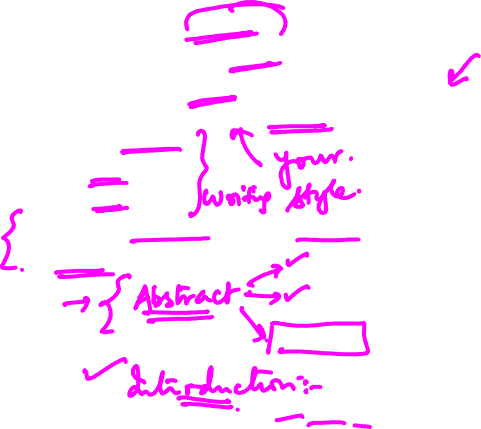 your
writing style.
Abstract
Introduction:-